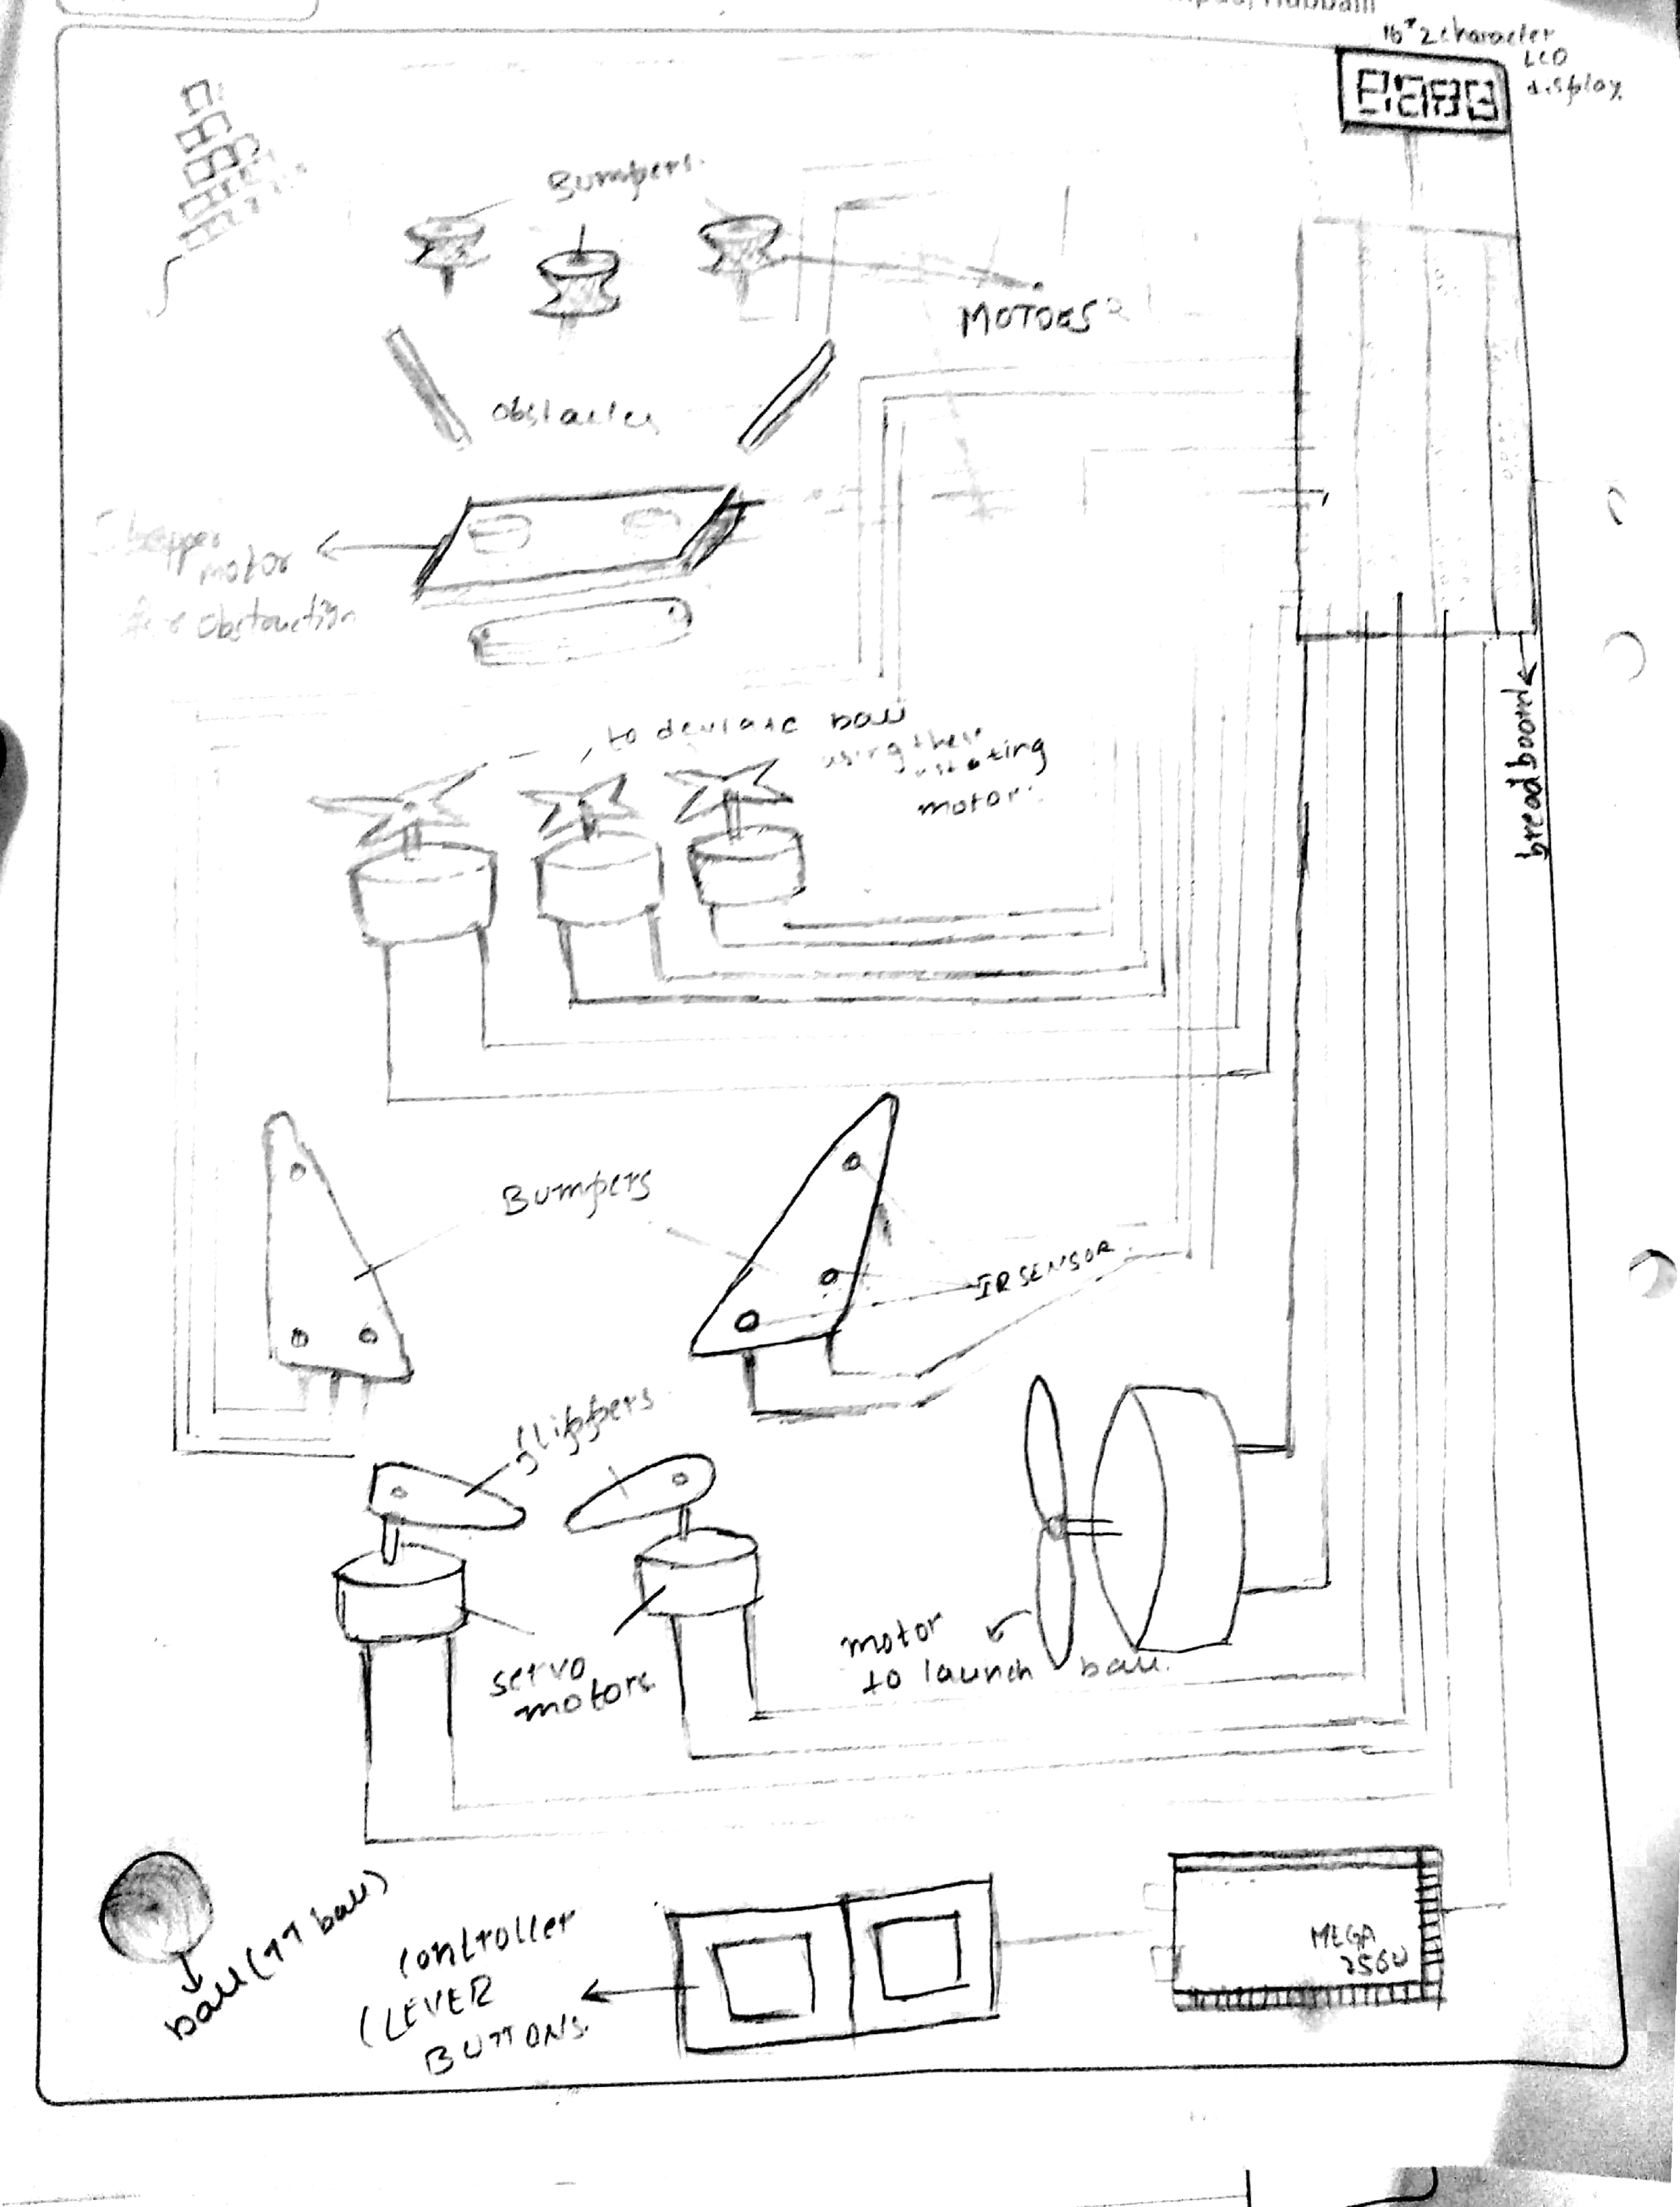 16*2 character
LCD
display
Bumpers
MOTORS
obstacles
Stepper
motor
obstruction
to deviate ball
using these
rotating
motor
breadboard
Bumpers
IR SENSOR
flippers
servo
motors
motor
to launch ball
ball (TT ball)
controller
(LEVER
BUTTONS
MEGA
2560